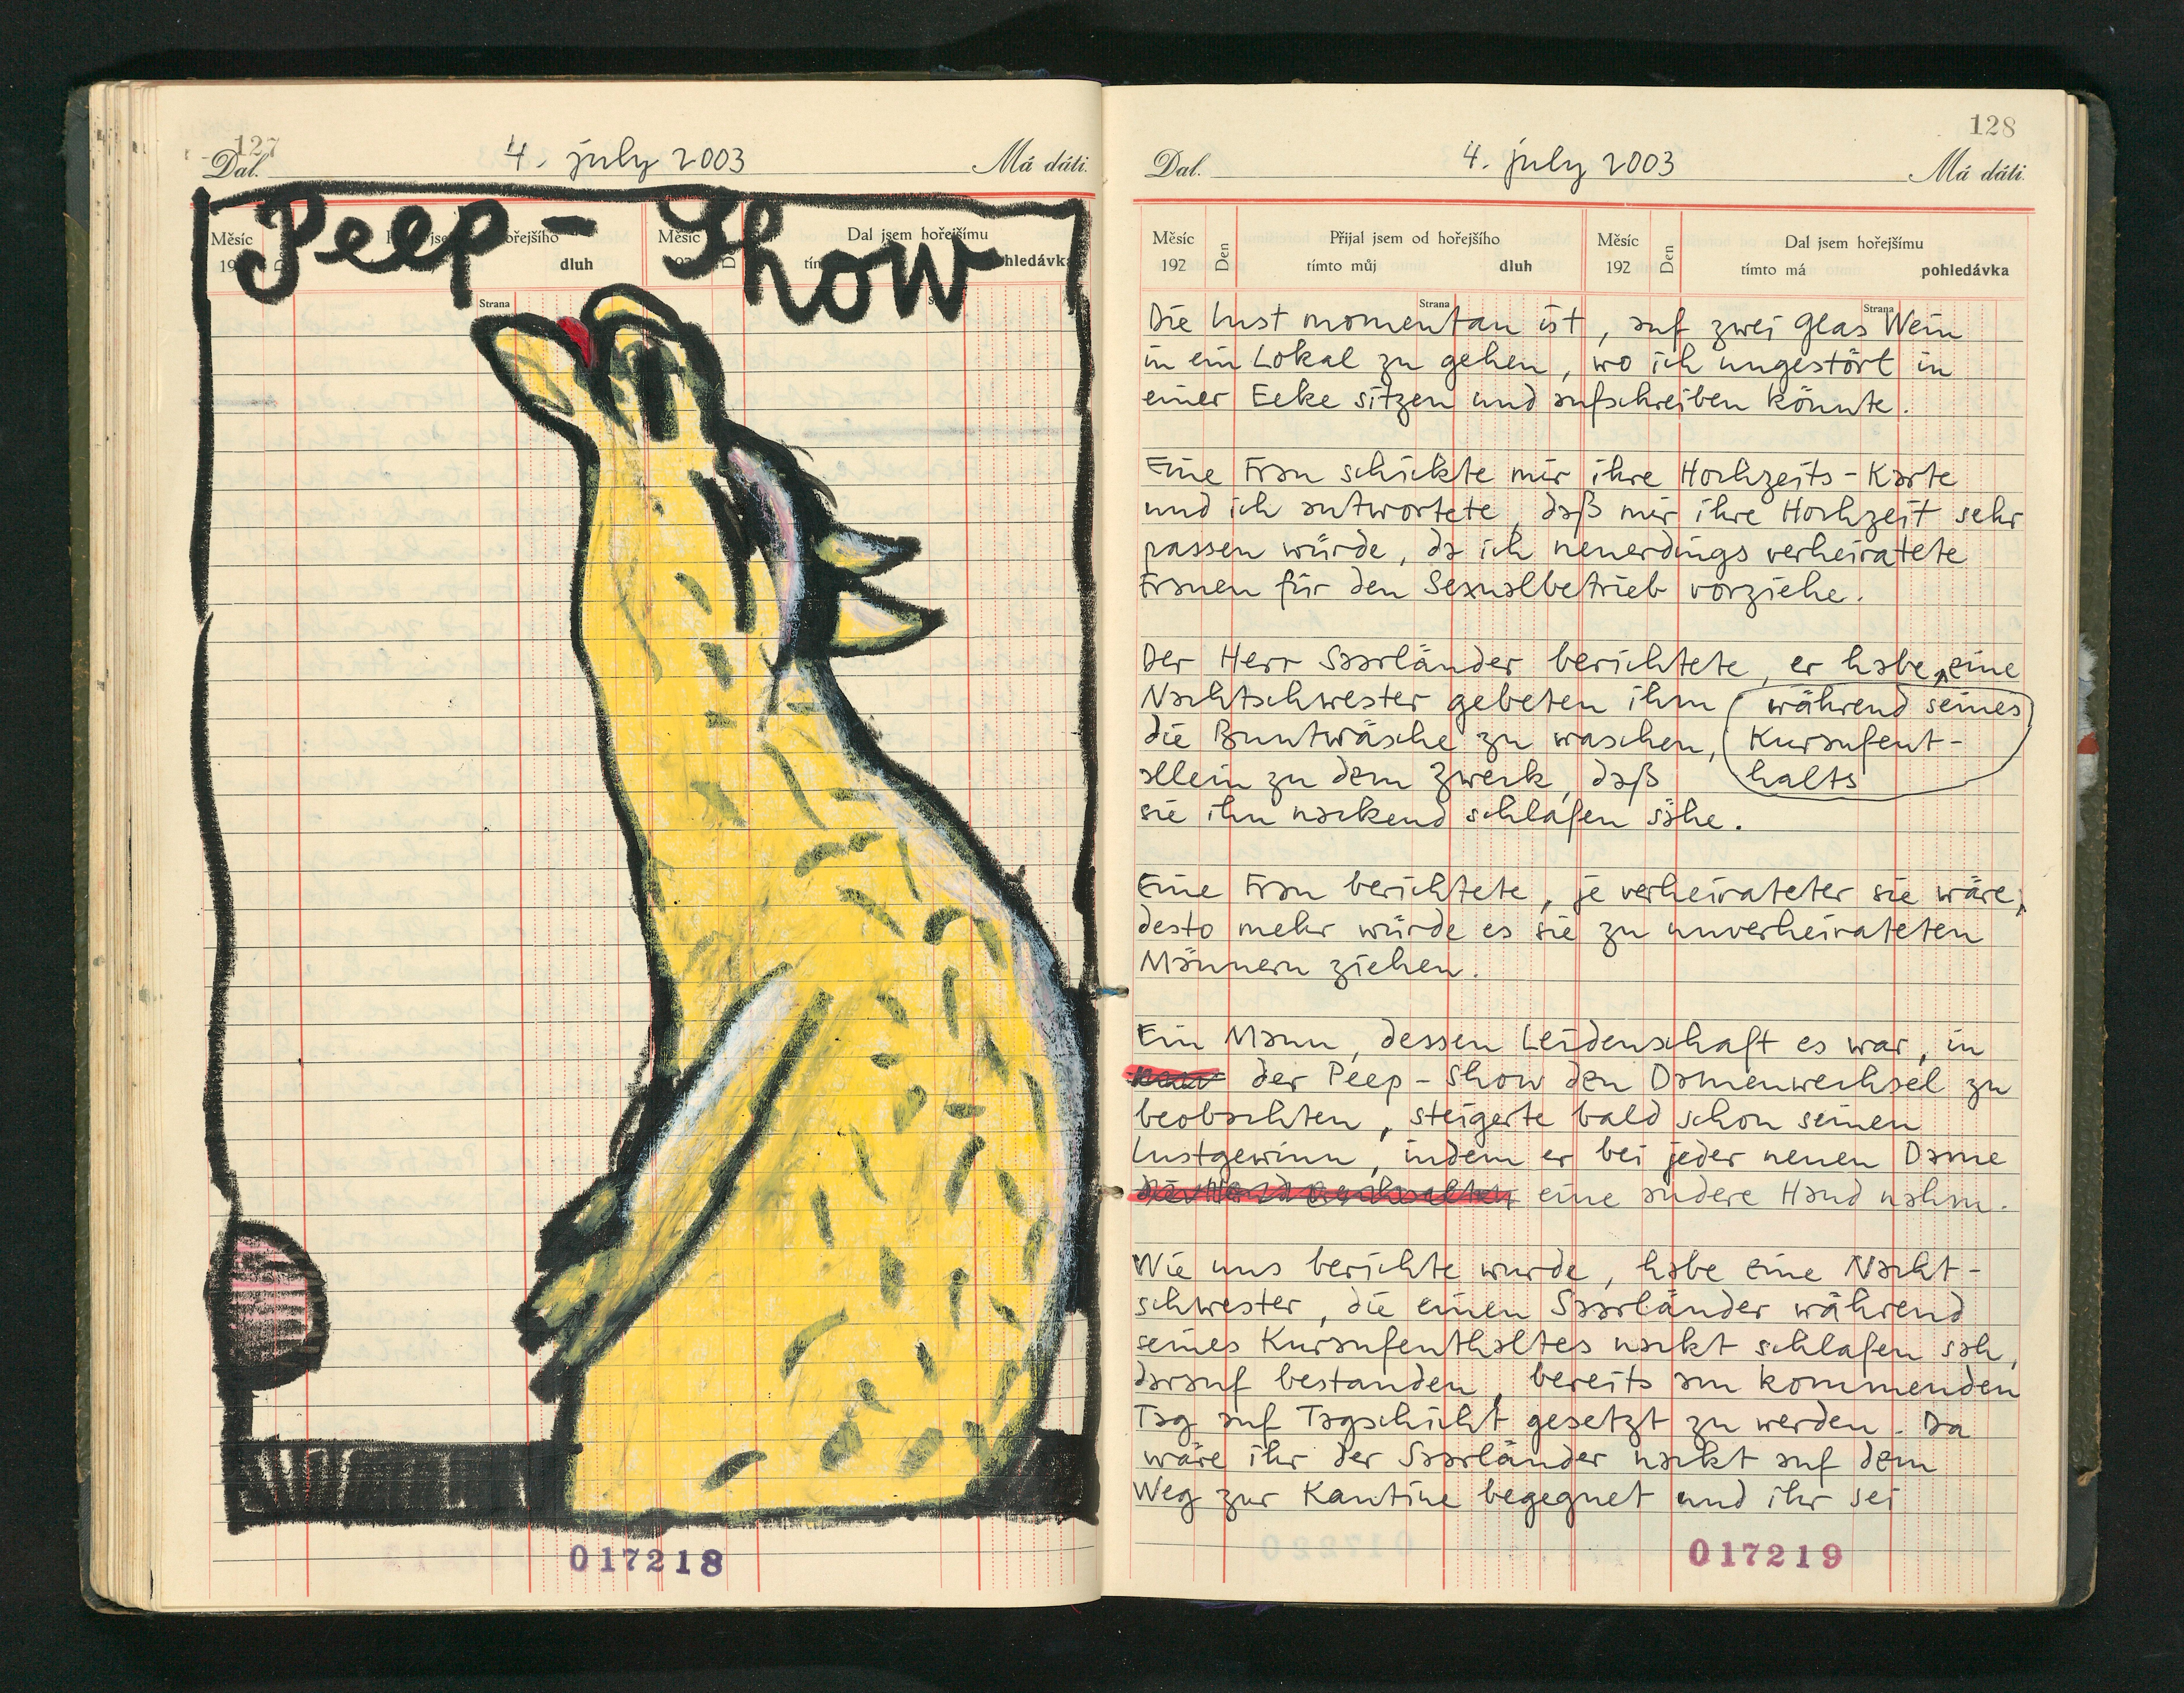 127
4. july 2003
Dal.
Má dáti.
Peep-Show
Měsíc
dluh
Měsíc
Dal jsem hořejšímu
Strana
017218
128
4. july 2003
Dal.
Má dáti.
Měsíc
192
Den
Přijal jsem od hořejšího
tímto můj
dluh
Měsíc
192
Den
Dal jsem hořejšímu
tímto má
pohledávka
Strana
Strana
Die Lust momentan ist, auf zwei Glas Wein
in ein Lokal zu gehen, wo ich ungestört in
einer Ecke sitzen und aufschreiben könnte.
Eine Frau schickte mir ihre Hochzeits-Karte
und ich antwortete, daß mir ihre Hochzeit sehr
passen würde, da ich neuerdings verheiratete
Frauen für den Sexualbetrieb vorziehe.
Der Herr Saarländer berichtete, er habe eine
Nachtschwester gebeten ihm während seines
die Buntwäsche zu waschen, Kuraufent-
allein zu dem Zweck, daß halts
sie ihn nackend schlafen sähe.
Eine Frau berichtete, je verheirateter sie wäre,
desto mehr würde es sie zu unverheirateten
Männern ziehen.
Ein Mann, dessen Leidenschaft es war, in
der Peep-Show den Damenwechsel zu
beobachten, steigerte bald schon seinen
Lustgewinn, indem er bei jeder neuen Dame
eine andere Hand nahm.
Wie uns berichte wurde, habe eine Nacht-
schwester, die einen Saarländer während
seines Kuraufenthaltes nackt schlafen sah,
darauf bestanden, bereits am kommenden
Tag auf Tagschicht gesetzt zu werden. Da
wäre ihr der Saarländer nackt auf dem
Weg zur Kantine begegnet und ihr sei
017219